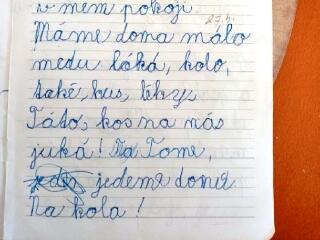 v mem pokoji.
27.4.
Máme doma málo
medu láká, kolo,
také, kus, léky,
Táto, kos na nás
juká! Na Tome,
jedeme domů
Na kola!